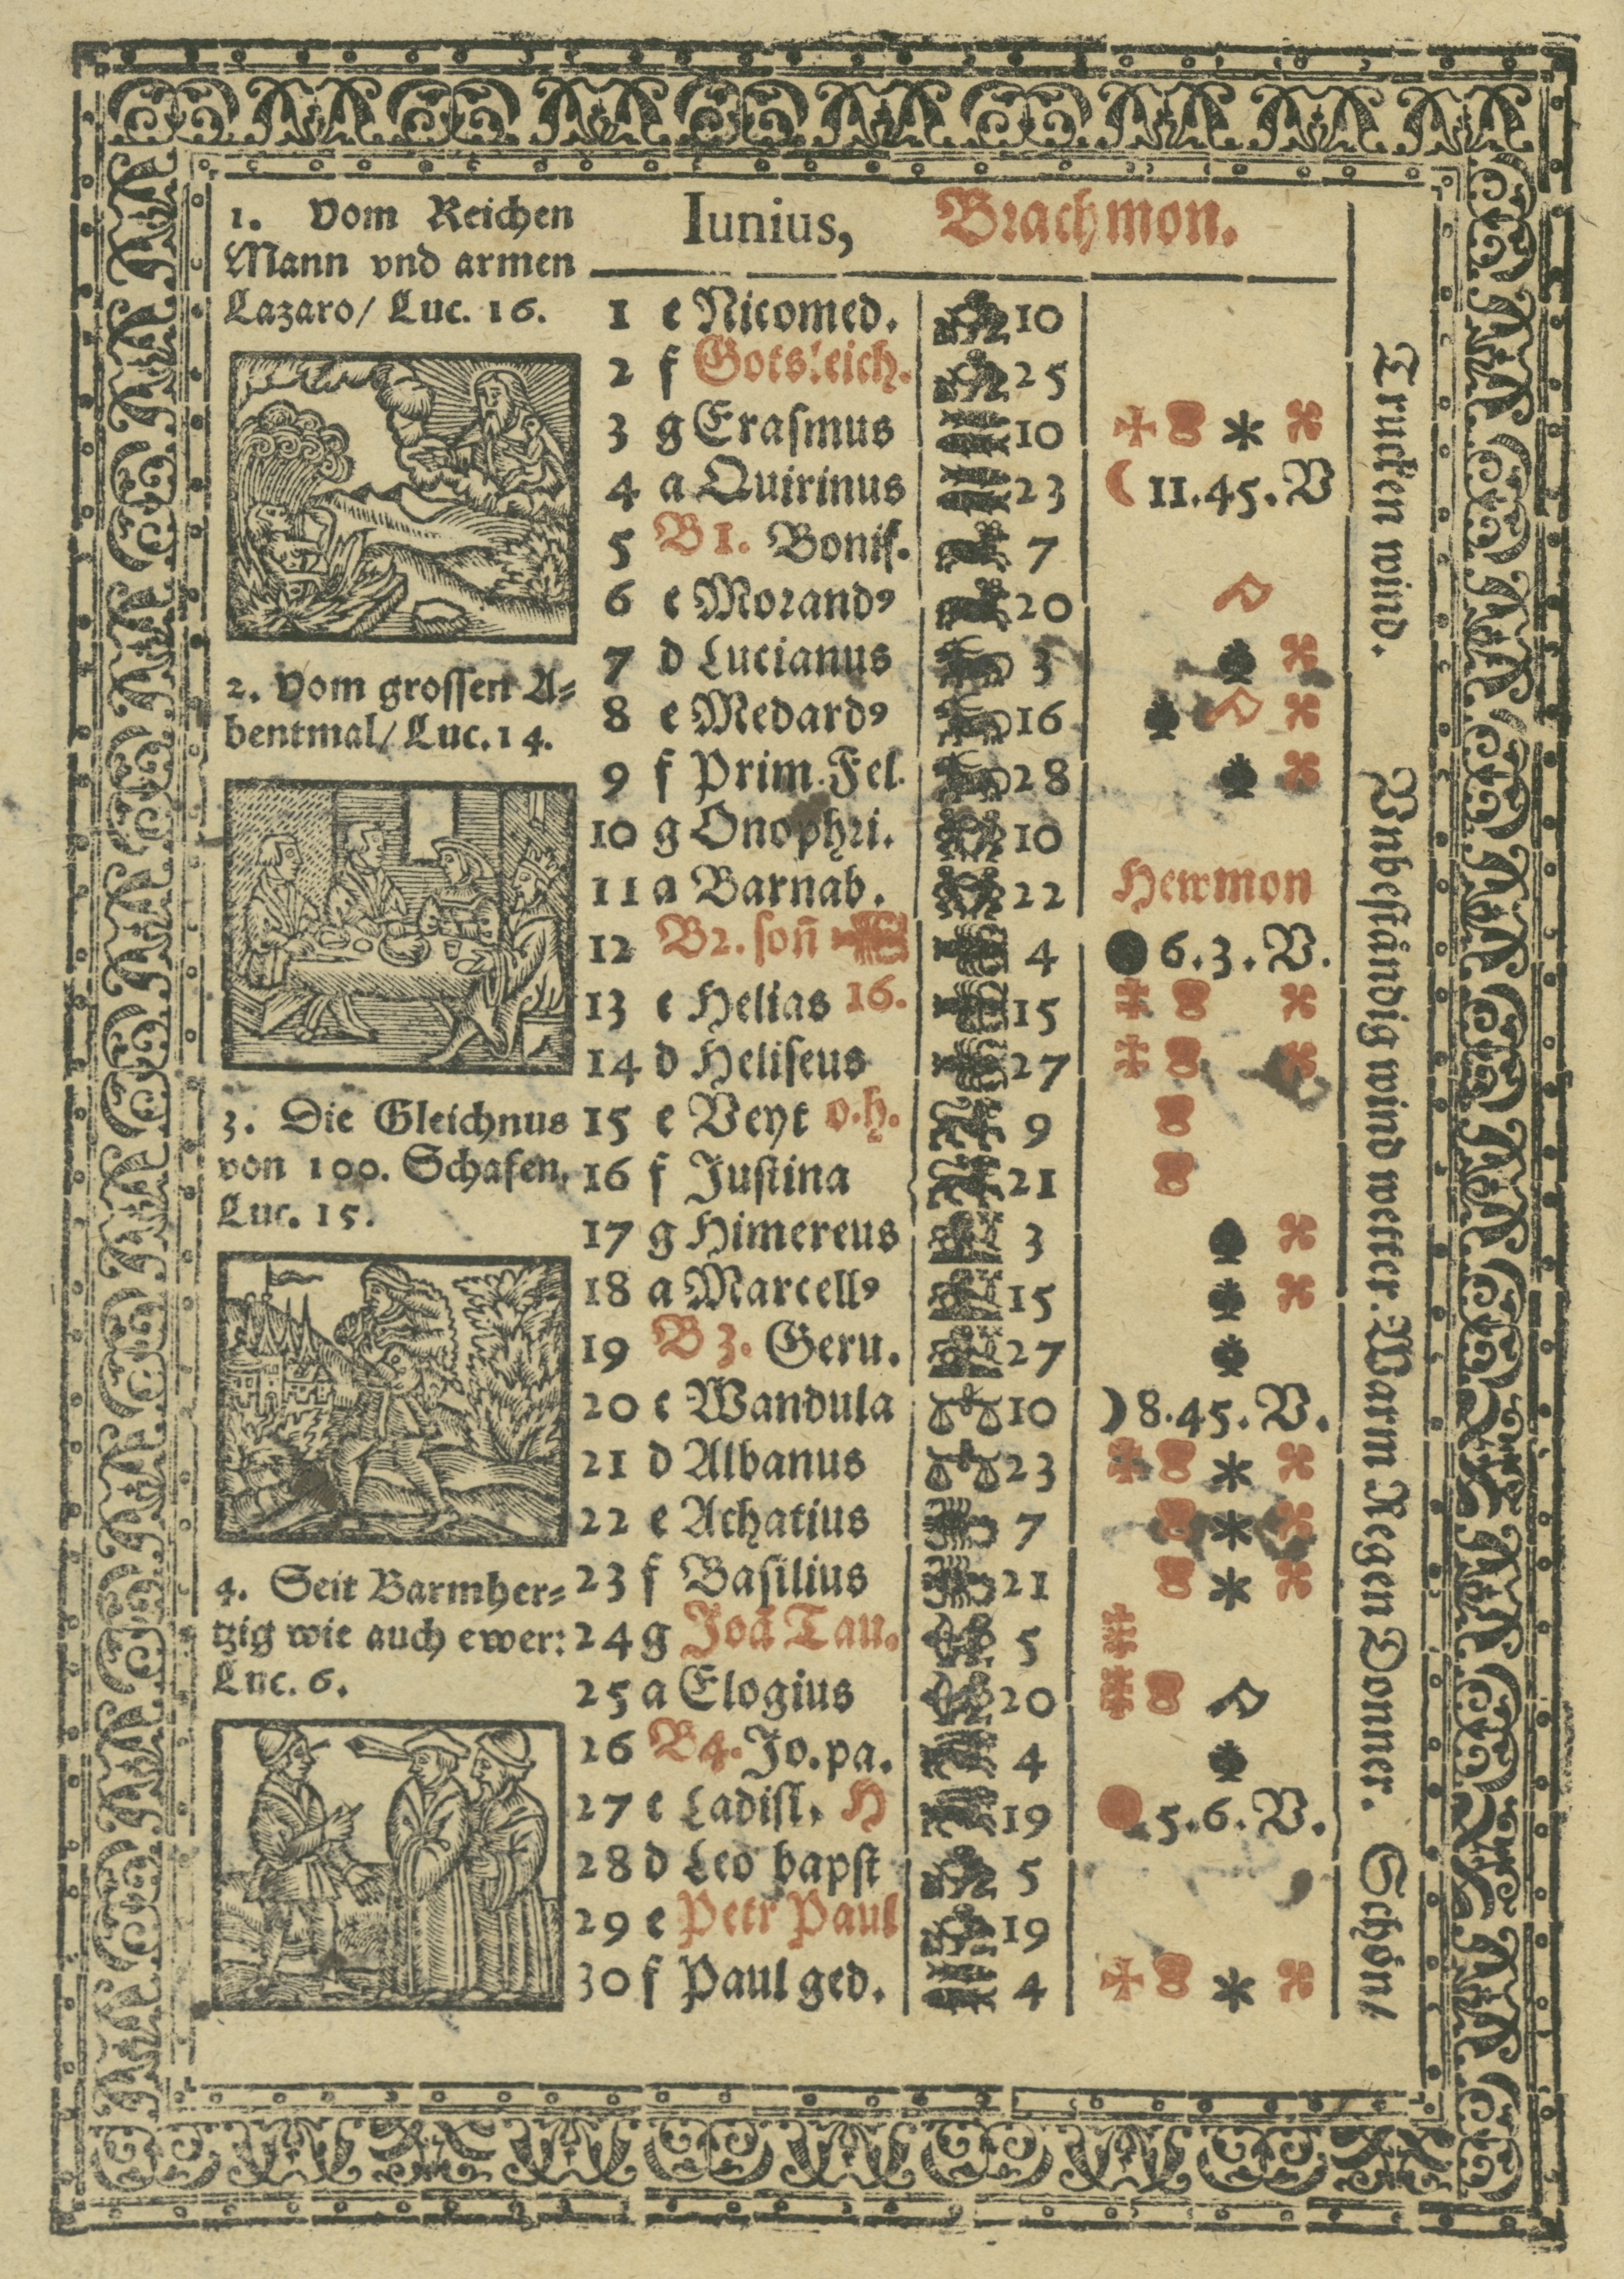 1. Vom Reichen
Mann vnd armen
Lazaro/ Luc. 16.
2. Vom grossen A⸗
bentmal/ Luc. 14.
3. Die Gleichnus
von 100. Schafen.
Luc. 15.
4. Seit Barmher⸗
tzig wie auch ewer:
Luc. 6.
Iunius, Brachmon.
1 e Nicomed. 10
2 f Gotsleich. 25
3 g Erasmus 10
4 a Quirinus 23 11.45.V
5 B 1. Bonif. 7
6 c Morandꝰ 20
7 d Lucianus 3
8 e Medardꝰ 16
9 f Prim. Fel. 28
10 g Onophri. 10
11 a Barnab. 22 Hewmon
12 B2. son̄ 4 6.3.V.
13 c Helias 16. 15
14 d Heliseus 27
15 e Veyt o.h. 9
16 f Justina 21
17 g Himereus 3
18 a Marcellꝰ 15
19 B 3. Geru. 27
20 c Wandula 10 8.45.V.
21 d Albanus 23
22 e Achatius 7
23 f Basilius 21
24 g Joā Tau. 5
25 a Elogius 20
26 B4. Jo.pa. 4
27 c Ladisl. H 19 .5.6.V.
28 d Leo bapst 5
29 e Petr Paul 19
30 f Paul ged. 4
Trucken wind. Vnbeständig wind wetter. Warm Regen Donner. Schön/